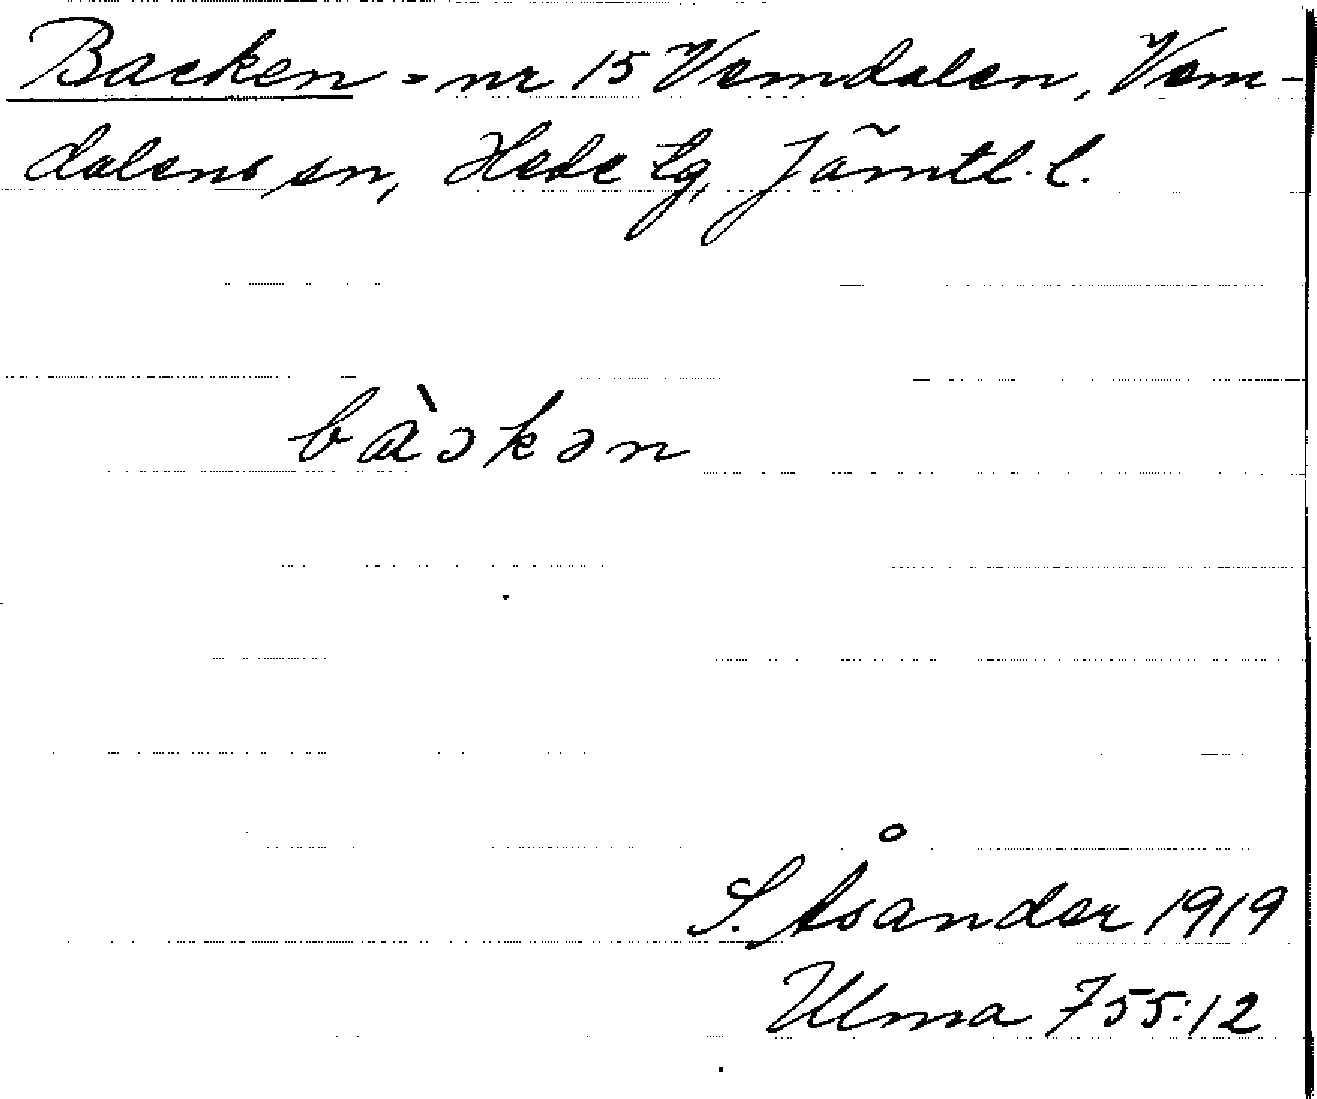 Backen = nr 15 Vemdalen, Vem-
dalens sn, Hede tg, Jämtl. l.
bàɔkən
S. Åsander 1919
Ulma 755:12